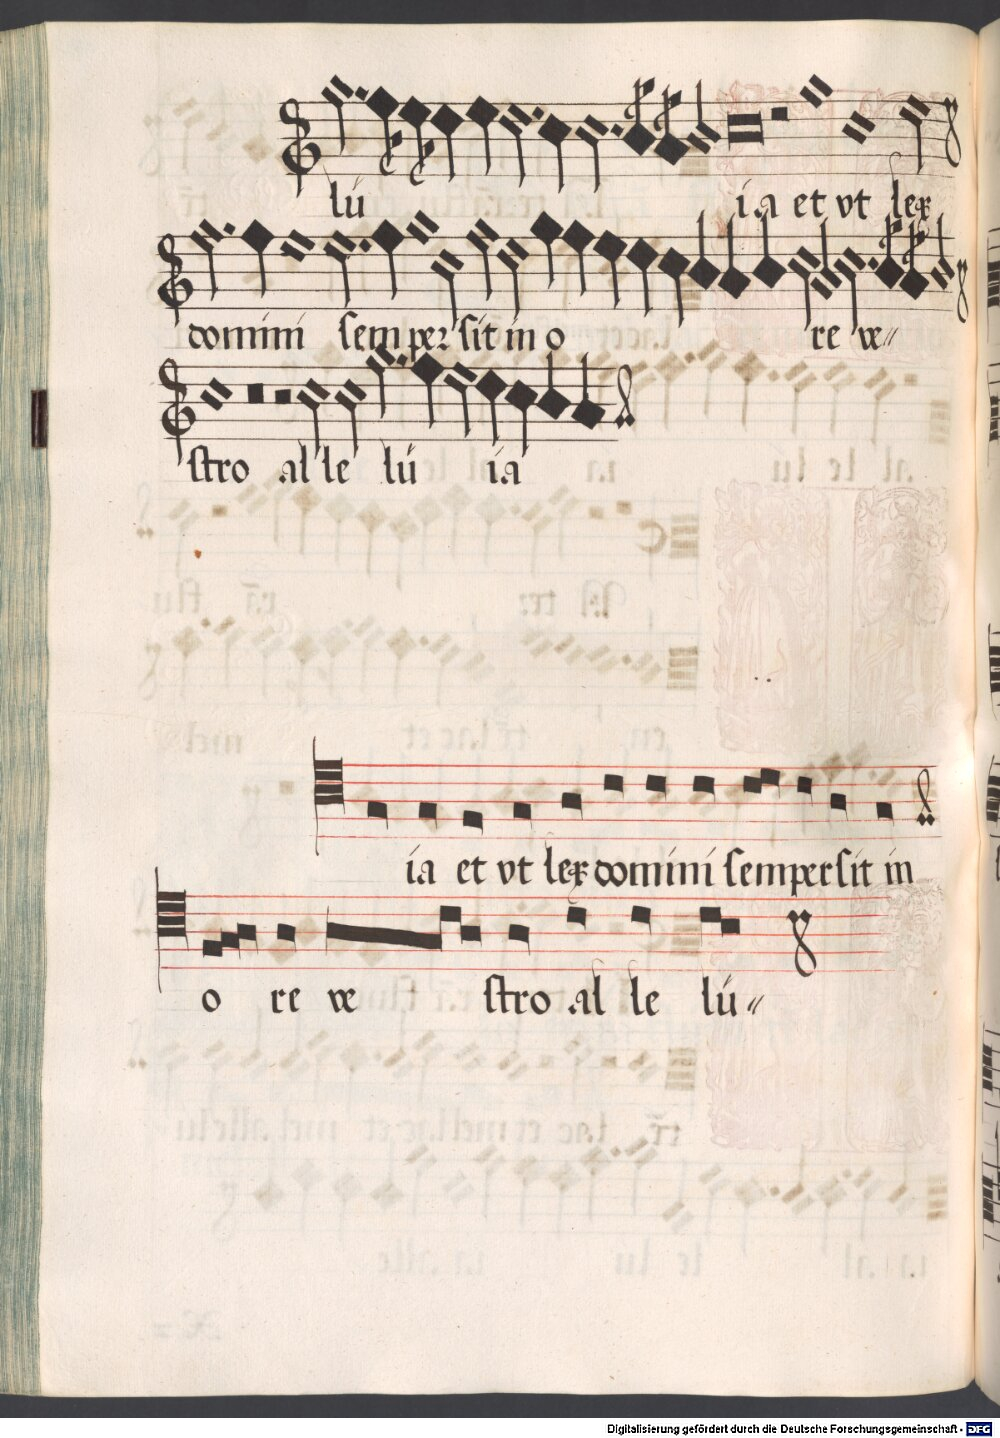 lu ia et vt lex
domini semper sit in o re ve〃
stro al le lu ia
ia et vt lex domini semper sit in
o re ve stro al le lu〃
Digitalisierung gefördert durch die Deutsche Forschungsgemeinschaft - DFG